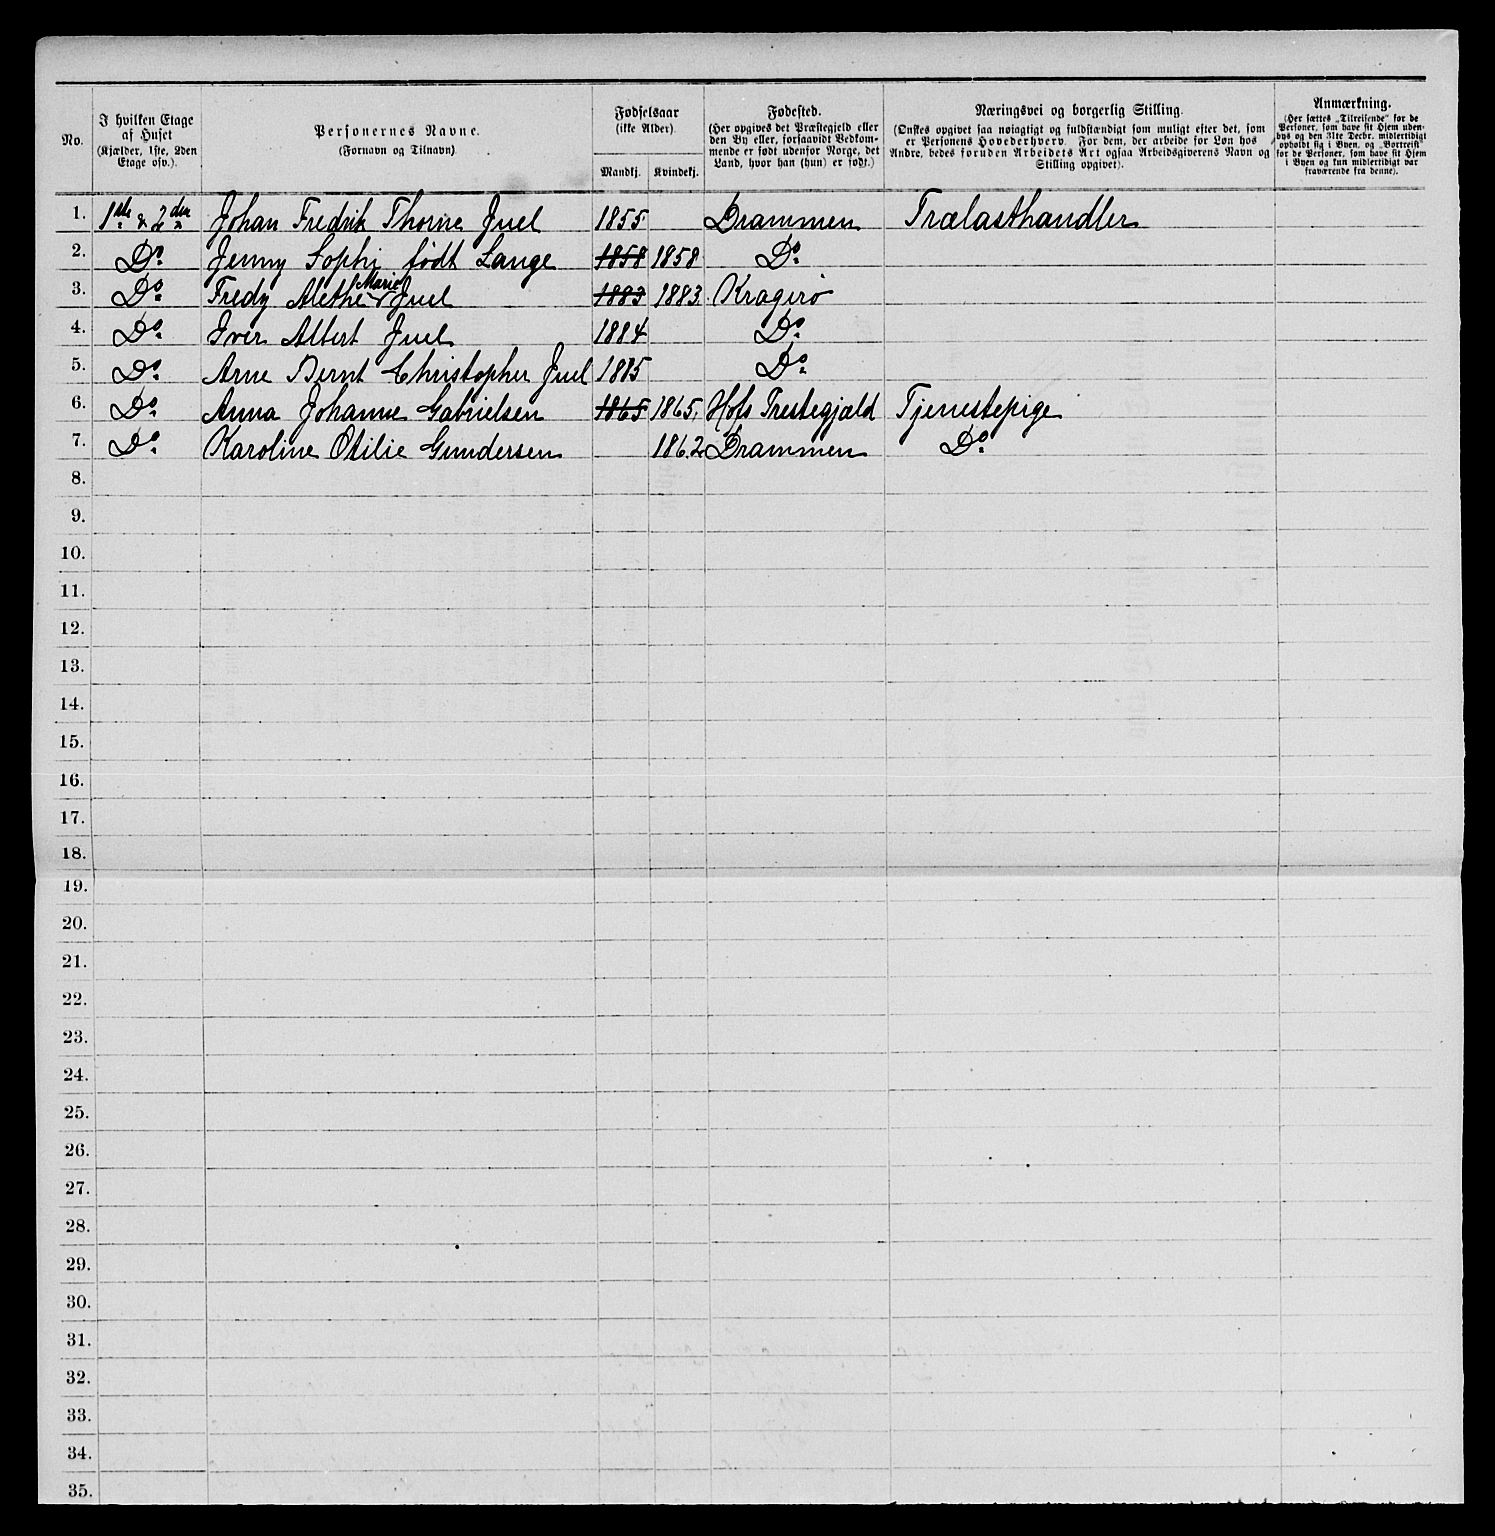 No.
I hvilken Etage af Huset (Kjælder, 1ste, 2den Etage osv.).
Personernes Navne. (Fornavn og Tilnavn)
Fødselsaar (ikke Alder)
Mandkj. Kvindekj.
Fødested. (Her opgives det Præstegjeld eller den By eller, forsaavidt Vedkommende er født udenfor Norge, det Land, hvor han (hun) er født.)
Næringsvei og borgerlig Stilling. (Ønskes opgivet saa nøiagtigt og fuldstændigt som muligt efter det, som er Personens Hovederhverv. For dem, der arbeide for Løn hos Andre, bedes foruden Arbeidets Art ogsaa Arbeidsgiverens Navn og Stilling opgivet).
Anmærkning. (Her sættes „Tilreisende“ for de Personer, som have sit Hjem udenbys og den 31te Decbr. midlertidigt opholdt sig i Byen, og „Bortreist“ for de Personer, som have sit Hjem i Byen og kun midlertidigt var fraværende fra denne).
1. 1ste & 2den Johan Fredrik Thorne Juel 1855 Drammen Trælasthandler
2. Do Jenny Sophi født Lange 1858 1858 Do
3. Do Fredy Alethe Marie Juel 1883 1883 Kragerø
4. Do Iver Albert Juel 1884 Do
5. Do Arne Bernt Christopher Juel 1885 Do
6. Do Anna Johanne Gabrielsen 1865 1865. Hofs Prestegjæld Tjenestepige
7. Do Karoline Otilie Gundersen 1862 Drammen Do
8.
9.
10.
11.
12.
13.
14.
15.
16.
17.
18.
19.
20.
21.
22.
23.
24.
25.
26.
27.
28.
29.
30.
31.
32.
33.
34.
35.